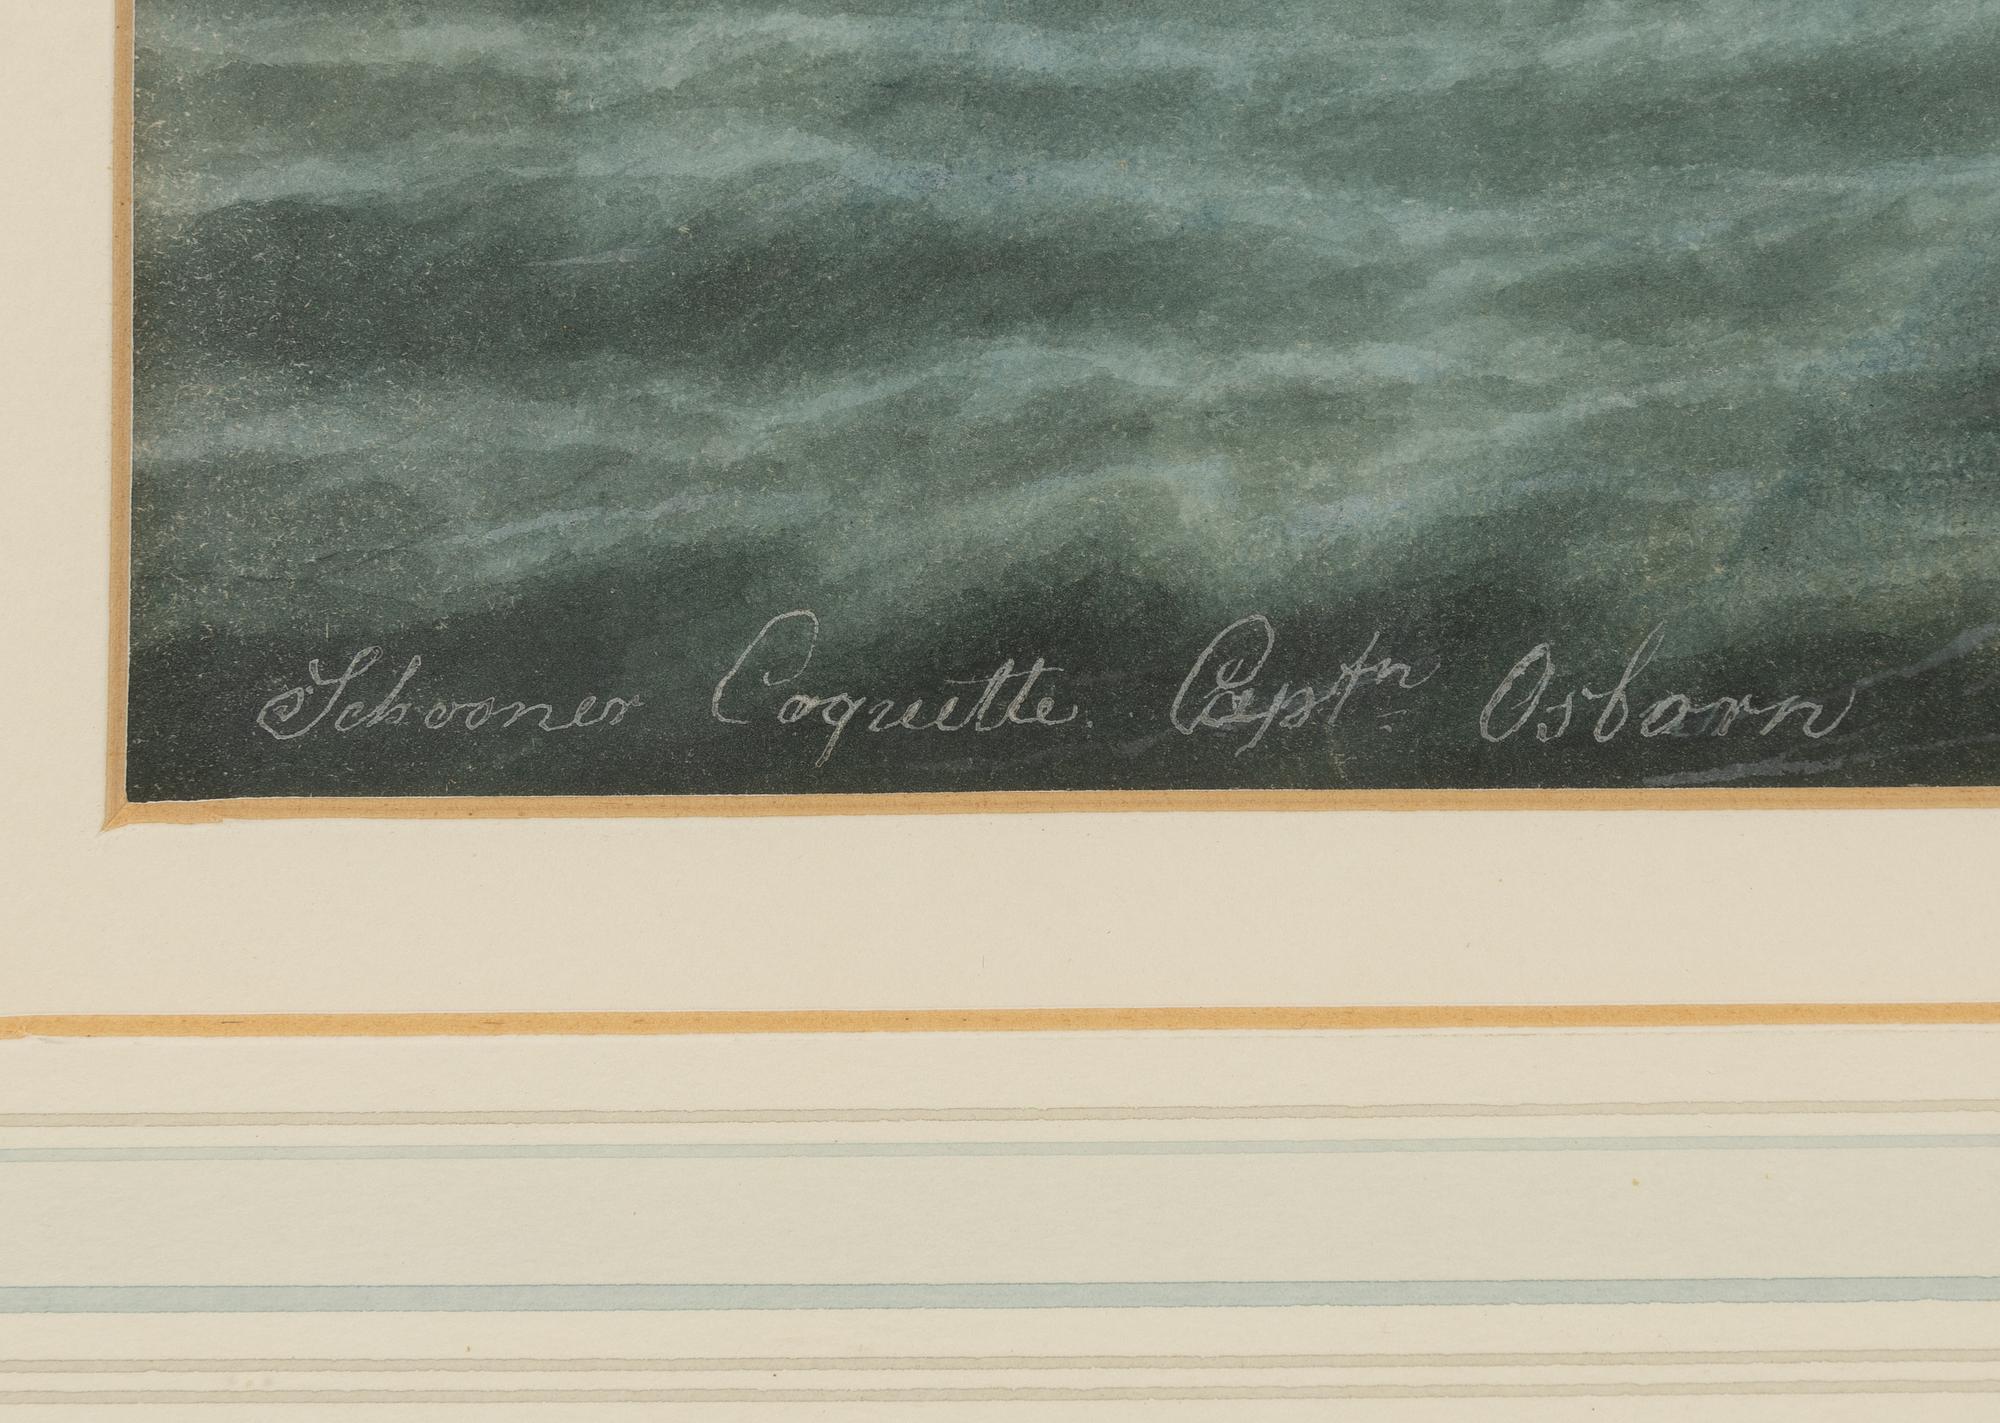 Schooner Coquette. Captn Osborn